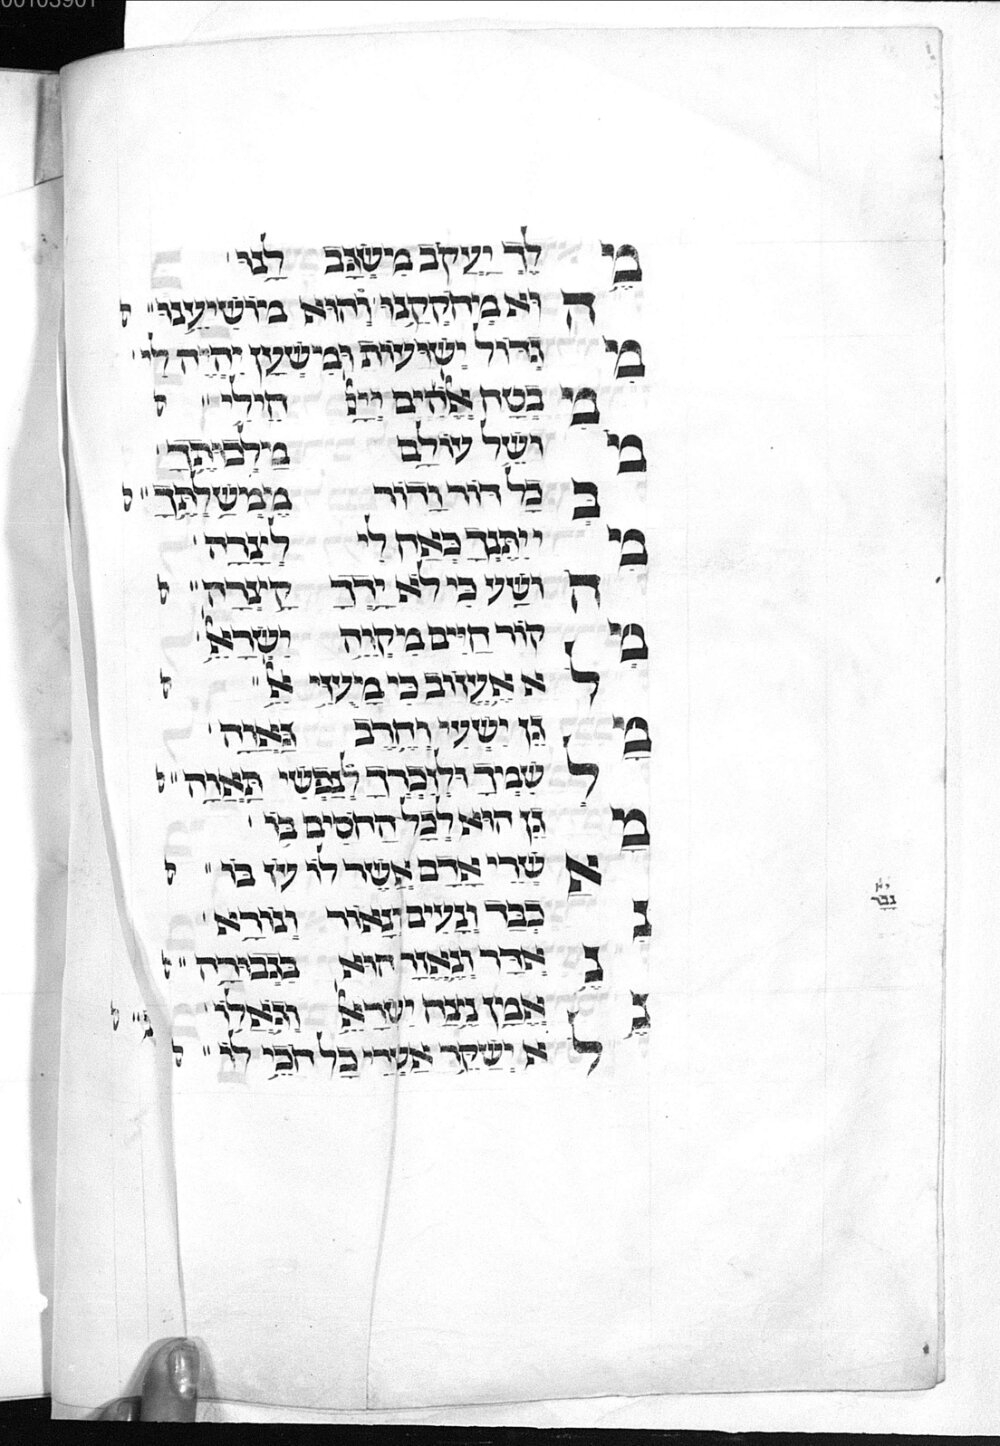 מֶלֶךְ יַעֲקֹב מִשְׂגָּב לָנוּ
הוּא מְחֹקְקֵנוּ וְהוּא מוֹשִׁיעֵנוּ ס
מִגְדּוֹל יְשׁוּעוֹת וּמִשְׁעָן יִהְיֶה לִי
מִבְטָח אֱלֹהִים יְיָ חֵילִי ס
מוֹשֵׁל עוֹלָם מַלְכוּתֶךָ
בְּכָל דּוֹר וָדוֹר מֶמְשַׁלְתֶּךָ ס
מִי יִתֶּנְךָ כְּאָח לִי לְצָרָה
הוֹשַׁע כִּי לֹא יָדְךָ קָצְרָה ס
מְקוֹר חַיִּים מִקְוֵה יִשְׂרָאֵל
לֹא אֶעֱזוֹב כִּי מָעֻזִּי אֵל ס
מָגֵן יִשְׁעִי וְחֶרֶב גַּאֲוָה
לְשִׁמְךָ וּלְזִכְרְךָ לְנַפְשִׁי תַּאֲוָה ס
מָגֵן הוּא לְכָל הַחוֹסִים בּוֹ
אַשְׁרֵי אָדָם אֲשֶׁר לוֹ עֹז בּוֹ ס
נִכְבָּד וְנָעִים נָאוֹר וְנוֹרָא
נֶאְדָּר וְנֶאְזָר הוּא בִּגְבוּרָה ס
נֶאֱמָן נֵצַח יִשְׂרָאֵל וְגֹאֲלוֹ
לֹא יְשַׁקֵּר אַשְׁרֵי כָּל חוֹכֵי לוֹ ס